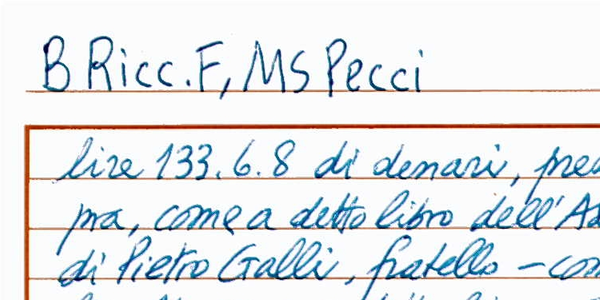 B Ricc. F, MS Pecci
lire 133.6.8 di denari, pres
pra, come a detto libro dell'Ad
di Pietro Galli, fratello – con